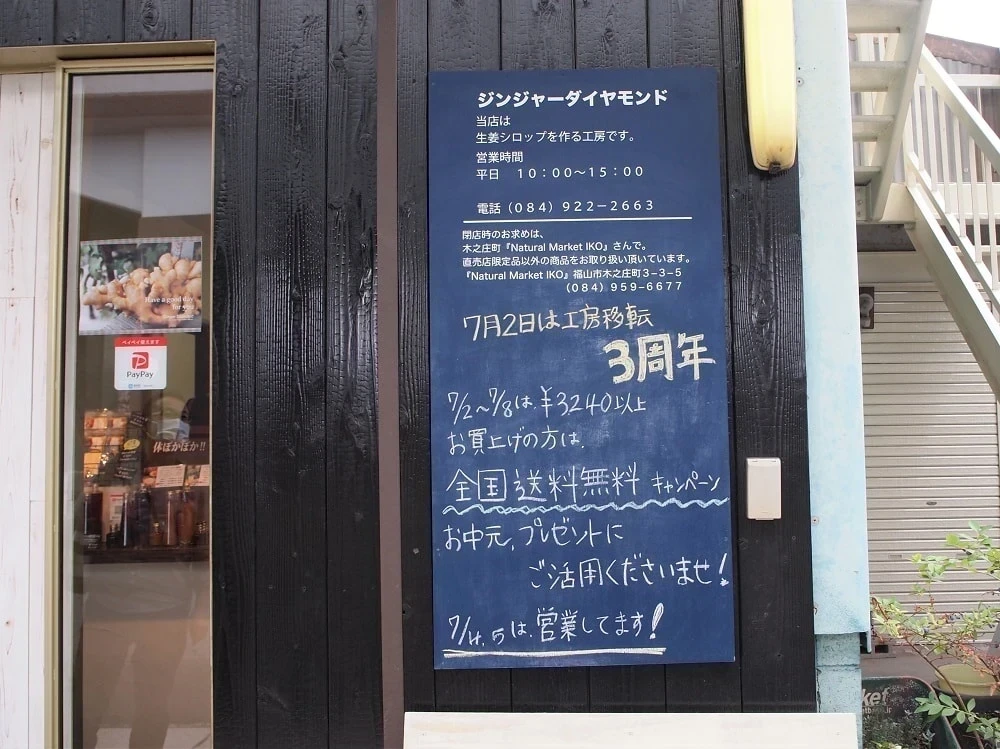 ジンジャーダイヤモンド
当店は
生姜シロップを作る工房です。
営業時間
平日 10:00~15:00
電話(084)922-2663
閉店時のお求めは、
木之庄町『Natural Market IKO』さんで。
直売店限定品以外の商品をお取り扱い頂いています。
『Natural Market IKO』福山市木之庄町3-3-5
(084)959-6677
7月2日は工房移転
3周年
7/2~7/8は、¥3240以上
お買上げの方は、
全国送料無料 キャンペーン
お中元、プレゼントに
ご活用くださいませ!
7/14、15は、営業してます!
Have a good day
for you
ペイペイ使えます
PayPay
体ぽかぽか!!